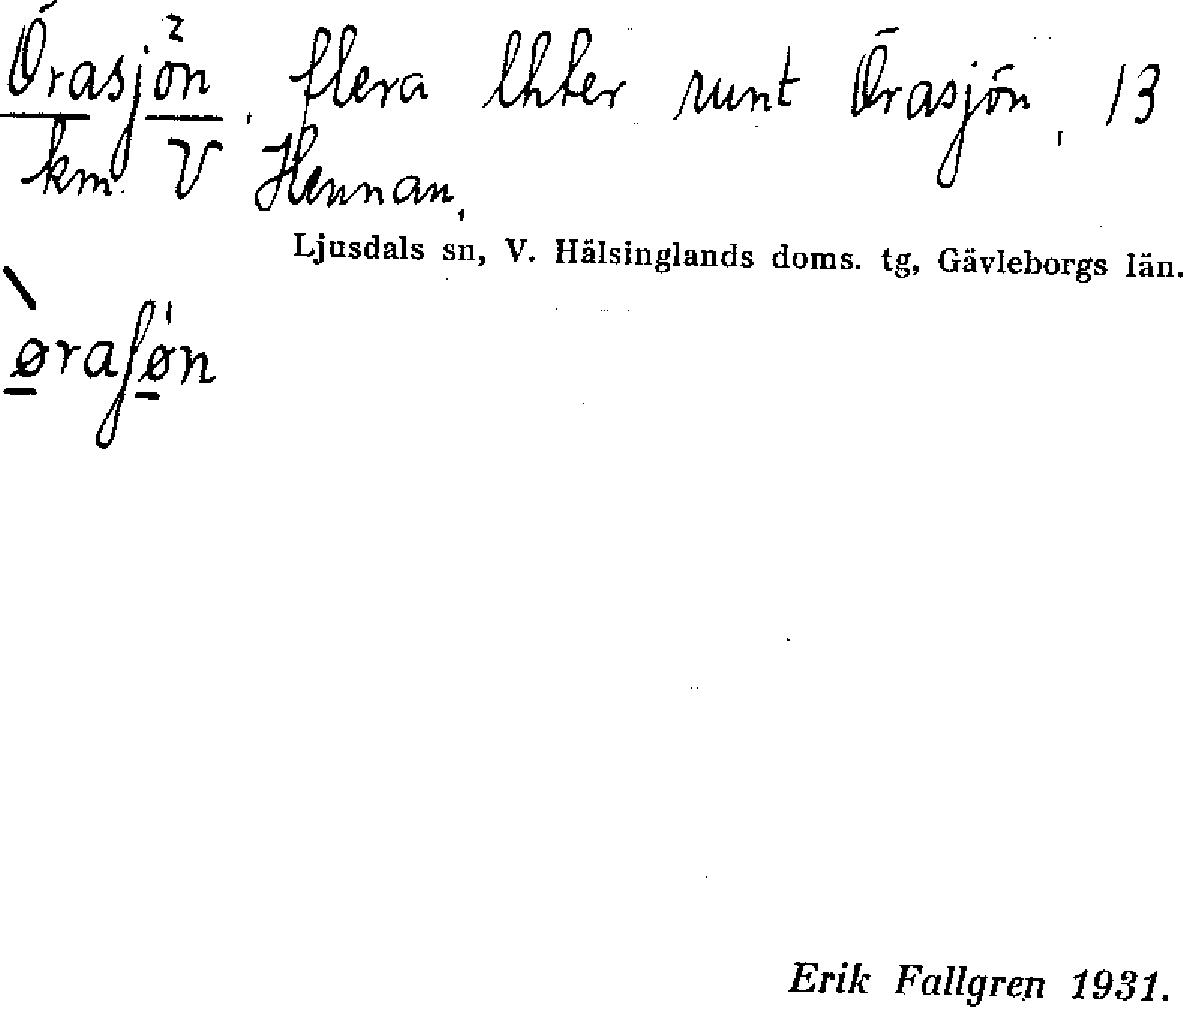 Örasjön², flera lhter runt Örasjön, 13
km. V Hennan,
Ljusdals sn, V. Hälsinglands doms. tg, Gävleborgs län.
ø̲raʃø̲n
Erik Fallgren 1931.